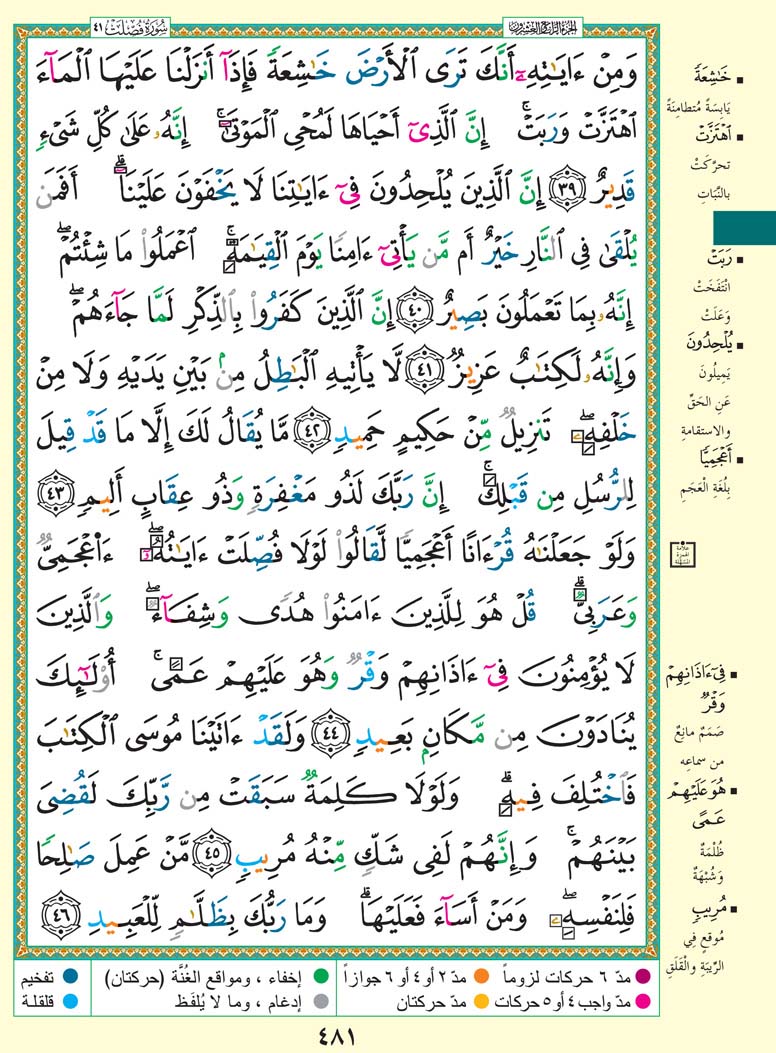 الجزء الرابع والعشرون
سُورَةُ فُصِّلَتْ ٤١
وَمِنْ ءَايَـٰتِهِۦٓ أَنَّكَ تَرَى ٱلْأَرْضَ خَـٰشِعَةً فَإِذَآ أَنزَلْنَا عَلَيْهَا ٱلْمَآءَ
ٱهْتَزَّتْ وَرَبَتْ ۚ إِنَّ ٱلَّذِىٓ أَحْيَاهَا لَمُحْىِ ٱلْمَوْتَىٰٓ ۚ إِنَّهُۥ عَلَىٰ كُلِّ شَىْءٍ
قَدِيرٌ ٣٩ إِنَّ ٱلَّذِينَ يُلْحِدُونَ فِىٓ ءَايَـٰتِنَا لَا يَخْفَوْنَ عَلَيْنَآ ۗ أَفَمَن
يُلْقَىٰ فِى ٱلنَّارِ خَيْرٌ أَم مَّن يَأْتِىٓ ءَامِنًا يَوْمَ ٱلْقِيَـٰمَةِ ۚ ٱعْمَلُوا۟ مَا شِئْتُمْ ۖ
إِنَّهُۥ بِمَا تَعْمَلُونَ بَصِيرٌ ٤٠ إِنَّ ٱلَّذِينَ كَفَرُوا۟ بِٱلذِّكْرِ لَمَّا جَآءَهُمْ ۖ
وَإِنَّهُۥ لَكِتَـٰبٌ عَزِيزٌ ٤١ لَّا يَأْتِيهِ ٱلْبَـٰطِلُ مِنۢ بَيْنِ يَدَيْهِ وَلَا مِنْ
خَلْفِهِۦ ۖ تَنزِيلٌ مِّنْ حَكِيمٍ حَمِيدٍ ٤٢ مَّا يُقَالُ لَكَ إِلَّا مَا قَدْ قِيلَ
لِلرُّسُلِ مِن قَبْلِكَ ۚ إِنَّ رَبَّكَ لَذُو مَغْفِرَةٍ وَذُو عِقَابٍ أَلِيمٍ ٤٣
وَلَوْ جَعَلْنَـٰهُ قُرْءَانًا أَعْجَمِيًّا لَّقَالُوا۟ لَوْلَا فُصِّلَتْ ءَايَـٰتُهُۥٓ ۖ ءَا۬عْجَمِىٌّ
وَعَرَبِىٌّ ۗ قُلْ هُوَ لِلَّذِينَ ءَامَنُوا۟ هُدًى وَشِفَآءٌ ۖ وَٱلَّذِينَ
لَا يُؤْمِنُونَ فِىٓ ءَاذَانِهِمْ وَقْرٌ وَهُوَ عَلَيْهِمْ عَمًى ۚ أُو۟لَـٰٓئِكَ
يُنَادَوْنَ مِن مَّكَانٍۭ بَعِيدٍ ٤٤ وَلَقَدْ ءَاتَيْنَا مُوسَى ٱلْكِتَـٰبَ
فَٱخْتُلِفَ فِيهِ ۗ وَلَوْلَا كَلِمَةٌ سَبَقَتْ مِن رَّبِّكَ لَقُضِىَ
بَيْنَهُمْ ۚ وَإِنَّهُمْ لَفِى شَكٍّ مِّنْهُ مُرِيبٍ ٤٥ مَّنْ عَمِلَ صَـٰلِحًا
فَلِنَفْسِهِۦ ۖ وَمَنْ أَسَآءَ فَعَلَيْهَا ۗ وَمَا رَبُّكَ بِظَلَّـٰمٍ لِّلْعَبِيدِ ٤٦
▪ خَـٰشِعَةً
يَابِسَةً مُتطامِنَةً
▪ ٱهْتَزَّتْ
تحرَّكَتْ
بالنَّبَاتِ
▪ رَبَتْ
انْتَفَخَتْ
وَعَلَتْ
▪ يُلْحِدُونَ
يَمِيلُونَ
عَنِ الحَقِّ
والاستقامةِ
▪ أَعْجَمِيًّا
بِلُغَةِ الْعَجَمِ
علامة
الهمزة
المُسَهَّلة
▪ فِىٓ ءَاذَانِهِمْ
وَقْرٌ
صَمَمٌ مانِعٌ
من سماعِه
▪ هُوَ عَلَيْهِمْ
عَمًى
ظُلْمَةٌ
وَشُبْهَةٌ
▪ مُرِيبٍ
مُوقعٍ فِي
الرِّيبَةِ والْقَلَقِ
مدّ ٦ حركات لزوماً ● مدّ ٢ أو ٤ أو ٦ جوازاً ● إخفاء ، ومواقع الغُنَّة (حركتان) ● تفخيم ●
مدّ واجب ٤ أو ٥ حركات ● مدّ حركتان ● إدغام ، وما لا يُلفَظ ● قلقلة ●
٤٨١